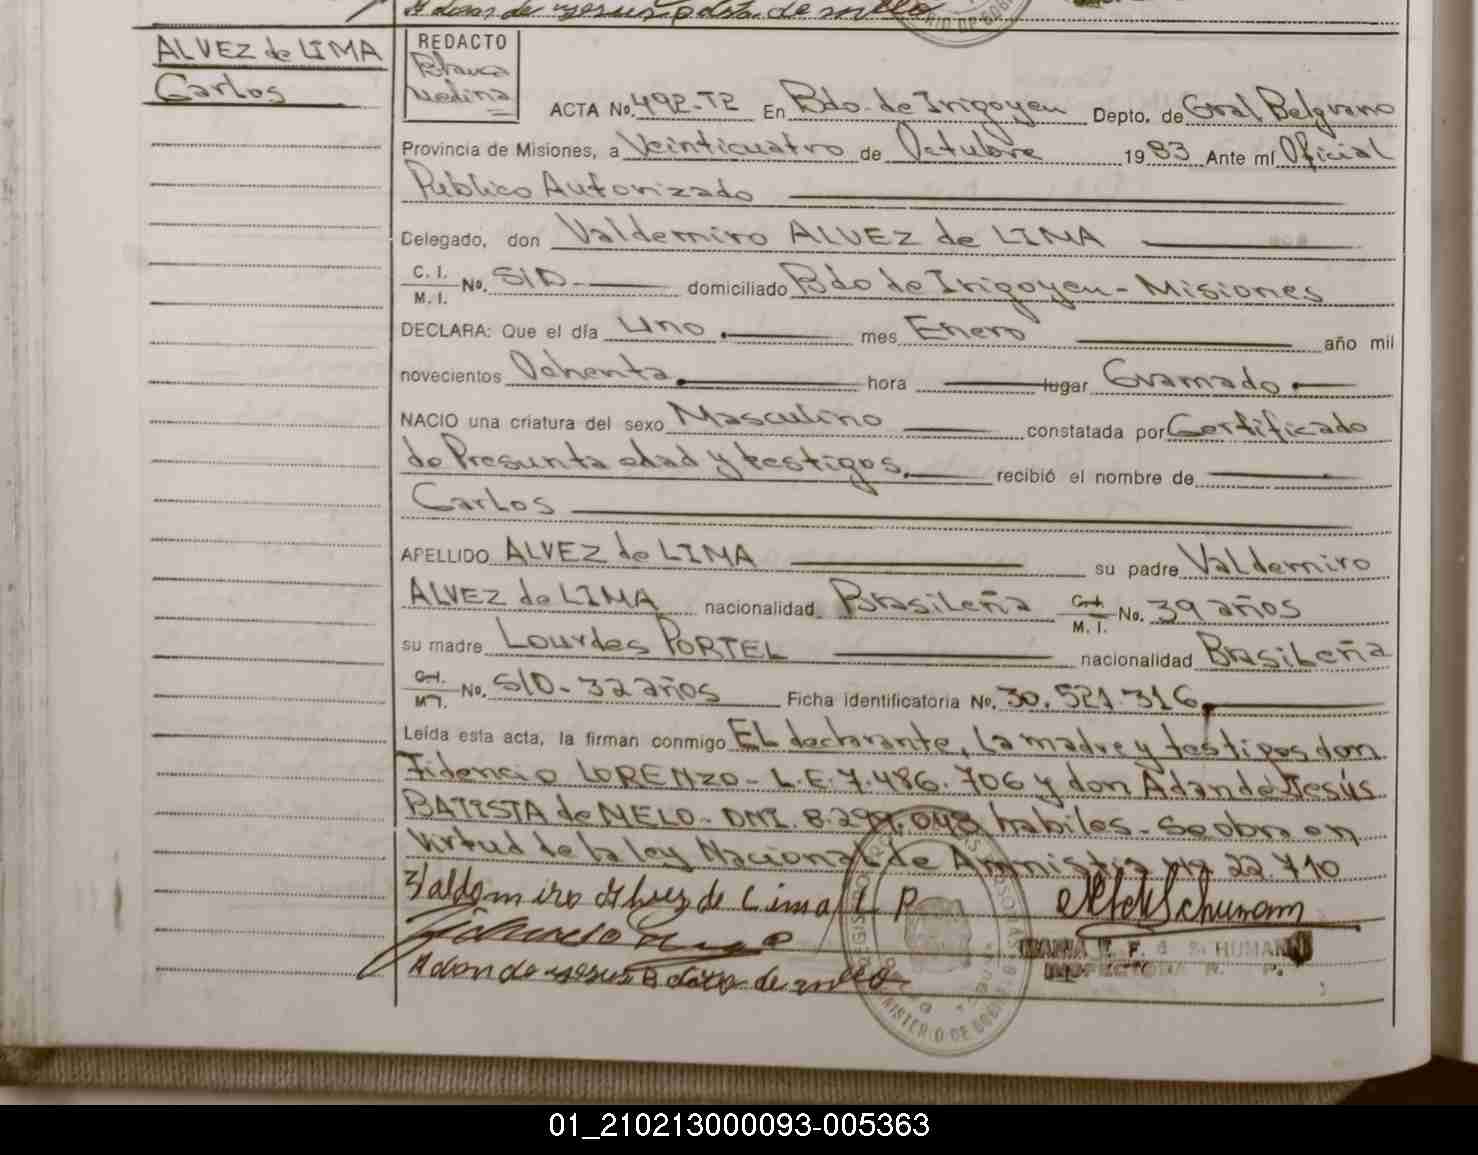 Adan de Jesus Batista de mello
ALVEZ de LIMA
Carlos
REDACTO
Blanca
Medina
ACTA No. 492-T2 En Bdo. de Irigoyen Depto. de Gral Belgrano
Provincia de Misiones, a Veinticuatro de Octubre 1983 Ante mí Oficial
Publico Autorizado
Delegado, don Valdemiro ALVEZ de LIMA
C. I.
M. I. No. S/D- domiciliado Bdo de Irigoyen - Misiones
DECLARA: Que el día uno. mes Enero año mil
novecientos Ochenta. hora lugar Gramado.
NACIO una criatura del sexo Masculino constatada por Certificado
de Presunta edad y testigos. recibió el nombre de
Carlos
APELLIDO ALVEZ de LIMA su padre Valdemiro
ALVEZ de LIMA nacionalidad Brasileña C.I. M. I. No. 39 años
su madre Lourdes PORTEL nacionalidad Brasileña
C.I. M.I. No. S/D- 32 años Ficha identificatoria No. 30.521.316
Leída esta acta, la firman conmigo EL declarante, la madre y testigos don
Fidencio LORENZO - L.E. 7.486.706 y don Adan de Jesús
BATISTA de MELO - DNI. 8.299.048 habiles - se obra en
Virtud de la ley Nacional de Amnistia Nº 22.710
Valdomiro Alvez de Lima L P
Adan de Jesus Batista de mello
MARIA E. F. d SCHUMANN
INSPECTORA R. P.
MINISTERIO DE GOBIERNO
01_210213000093-005363